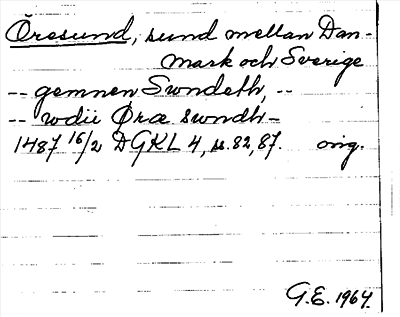 Öresund, sund mellan Dan-
mark och Sverige
-- gemnen Swndeth, --
-- wdii Øræ swndh -
1487 16/2 DGKL 4, s. 82, 87. orig.
G.E. 1964.